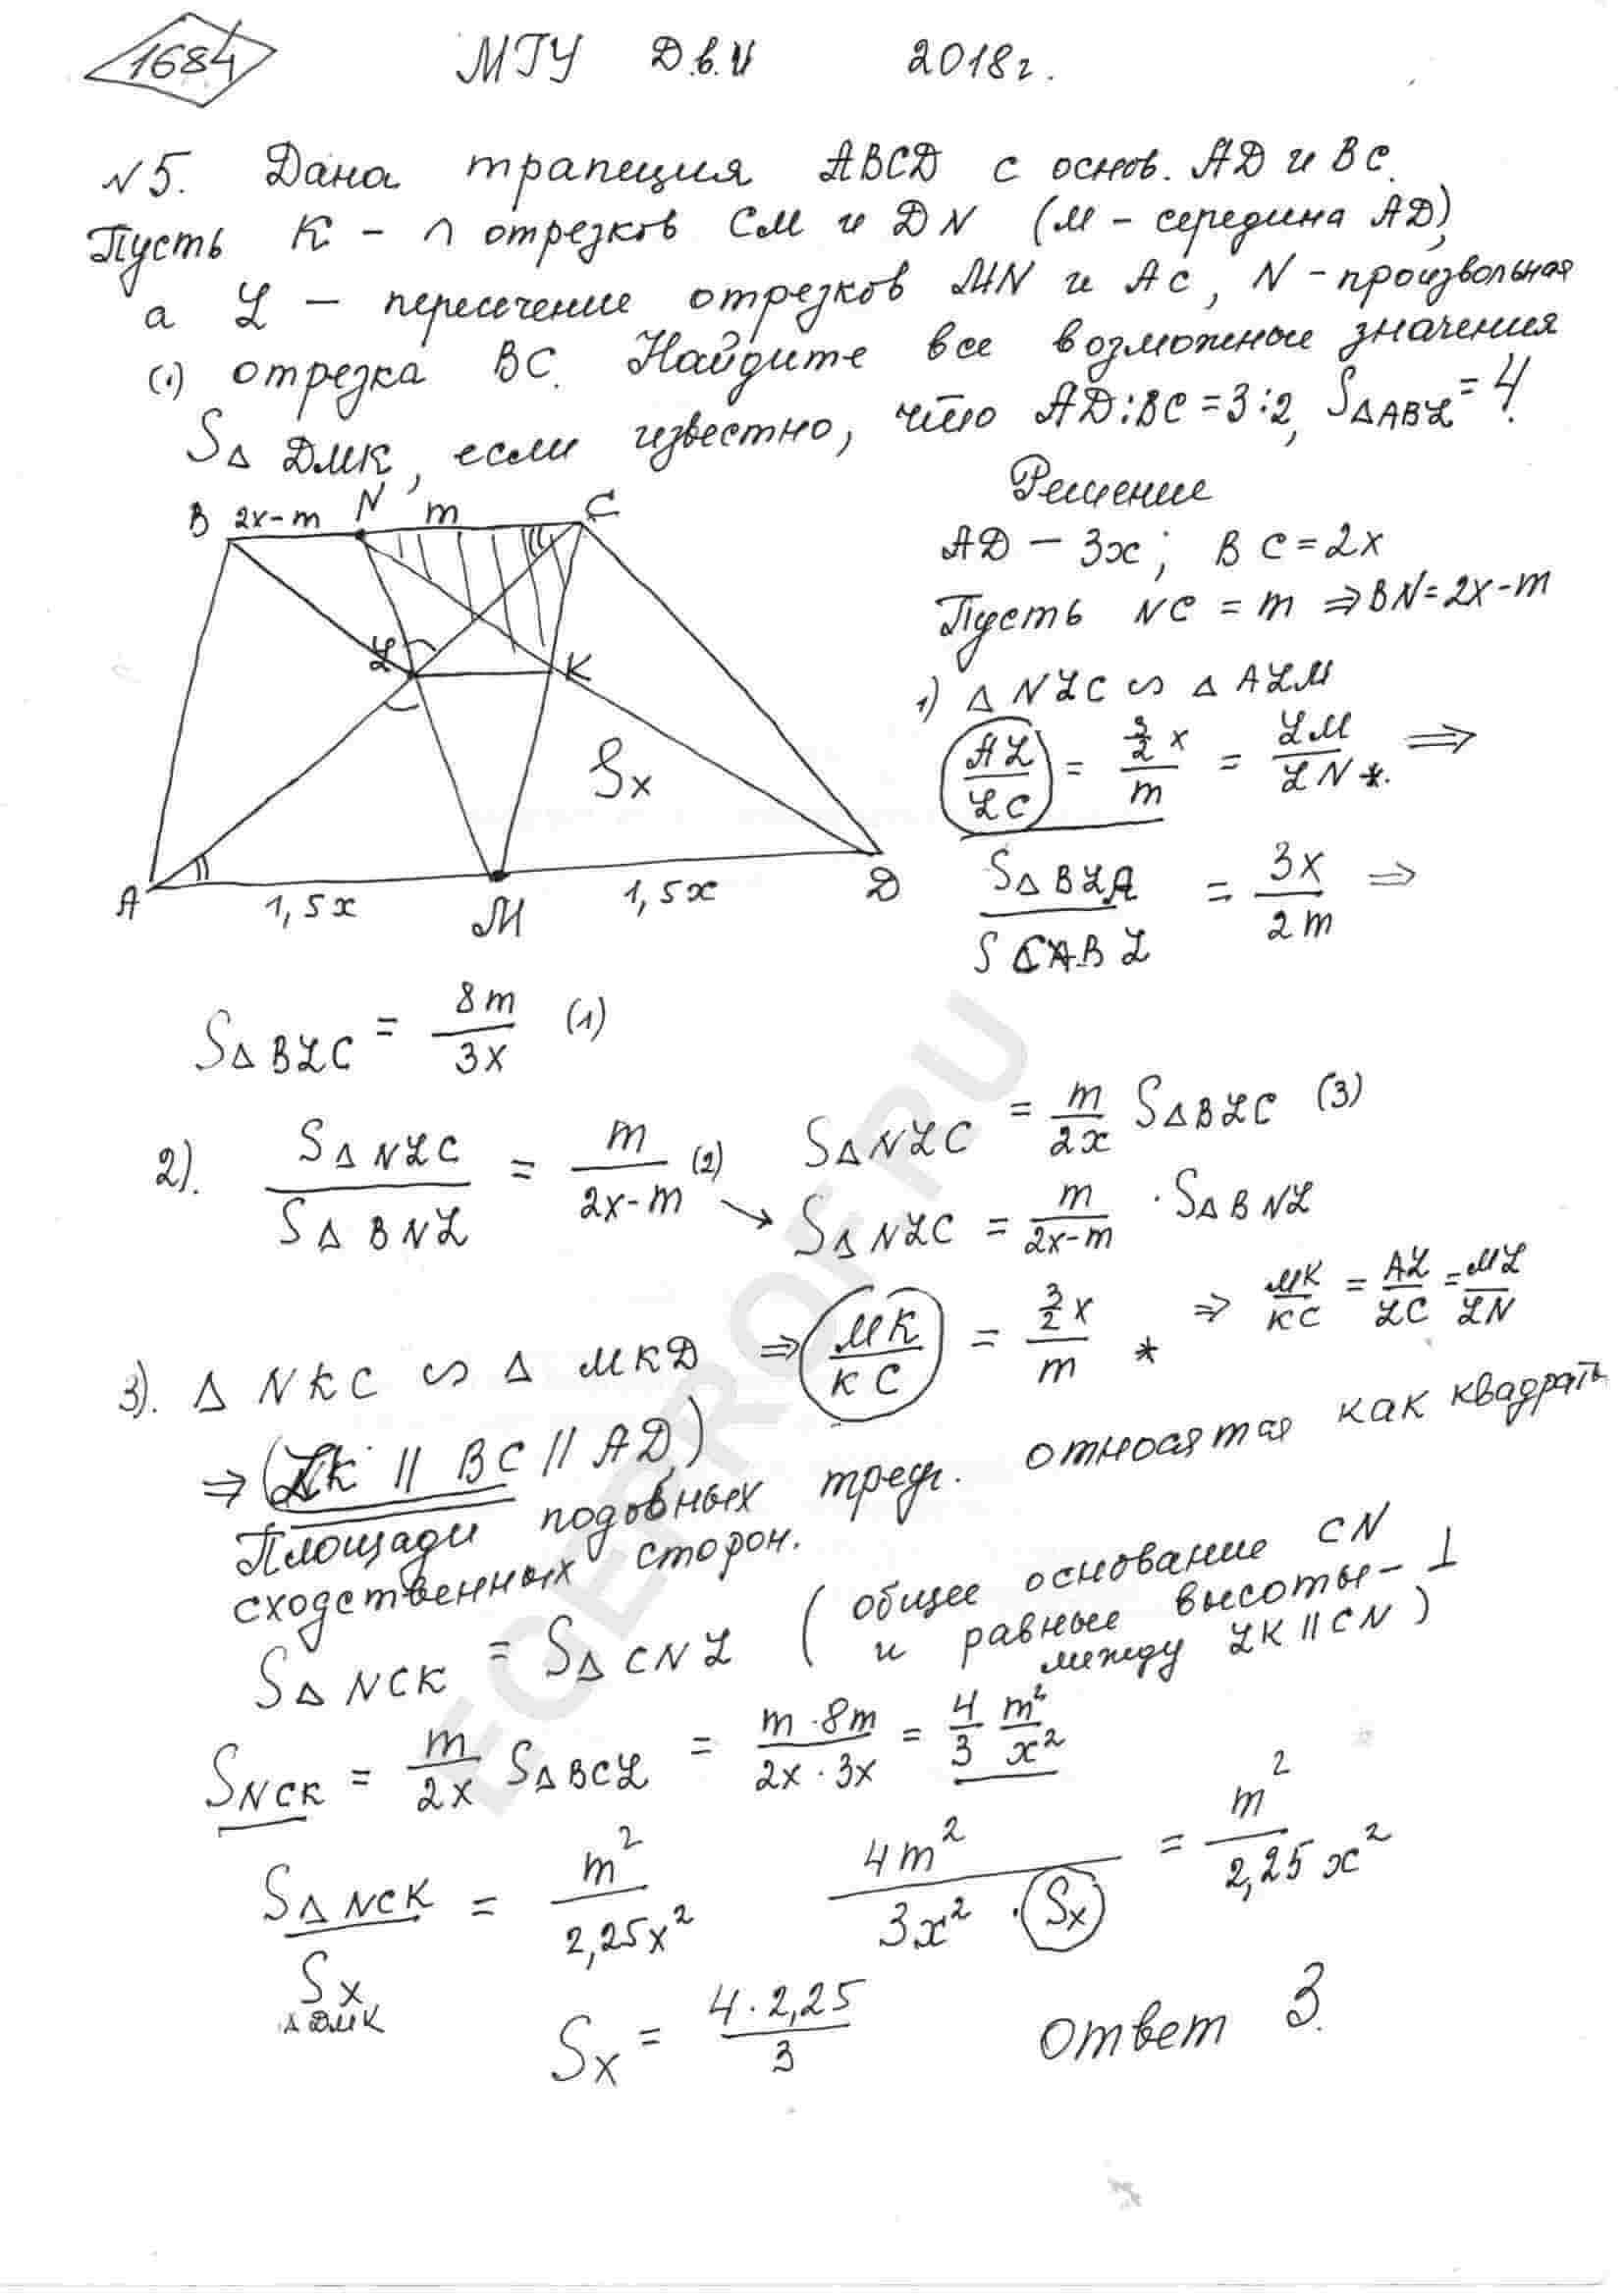 1684 МГУ Д.в.и 2018г.
№5. Дана трапеция ABCD с основ. AD и BC.
Пусть K - ∩ отрезков CM и DN (M - середина AD),
а L — пересечение отрезков MN и AC, N - произвольная
(·) отрезка BC. Найдите все возможные значения
S△ DMK, если известно, что AD:BC=3:2, S△ABL=4.
Решение
B 2x-m N m C
AD — 3x; BC=2x
Пусть NC = m ⇒ BN=2x-m
L K
1) △ NLC ∽ △ ALM
AL/LC = 3/2 x / m = LM/LN *. ⇒
Sx
S△BLA / S CABL = 3x/2m ⇒
A 1,5x M 1,5x D
S△BLC = 8m/3x (1)
2). S△NLC / S△BNL = m/2x-m (2) S△NLC = m/2x S△BLC (3)
↘ S△NLC = m/2x-m · S△BNL
3). △ NKC ∽ △ MKD ⇒ MK/KC = 3/2 x / m * ⇒ MK/KC = AL/LC = ML/LN
⇒ (LK || BC || AD)
Площади подобных треуг. относятся как квадраты
сходственных сторон.
S△NCK = S△CNL (общее основание CN
и равные высоты - ⊥
между LK || CN)
SNCK = m/2x S△BCL = m·8m/2x·3x = 4/3 m²/x²
S△NCK/Sx = m²/2,25x² 4m²/3x²·Sx = m²/2,25x²
△DMK
Sx = 4·2,25/3 ответ 3.
EGEPROF.RU